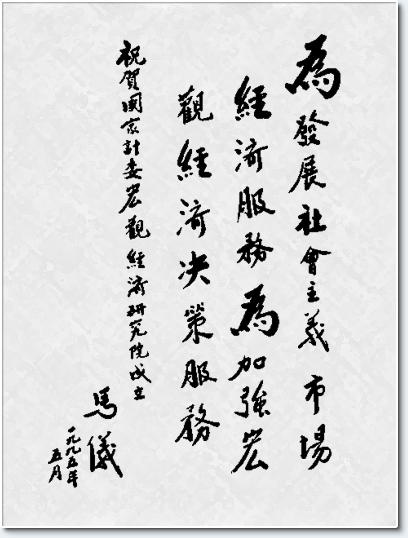 為發展社會主義市場
經济服務為加強宏
觀經济决策服務
祝賀國家計委宏觀經济研究院成立
馬儀
一九九五年
五月